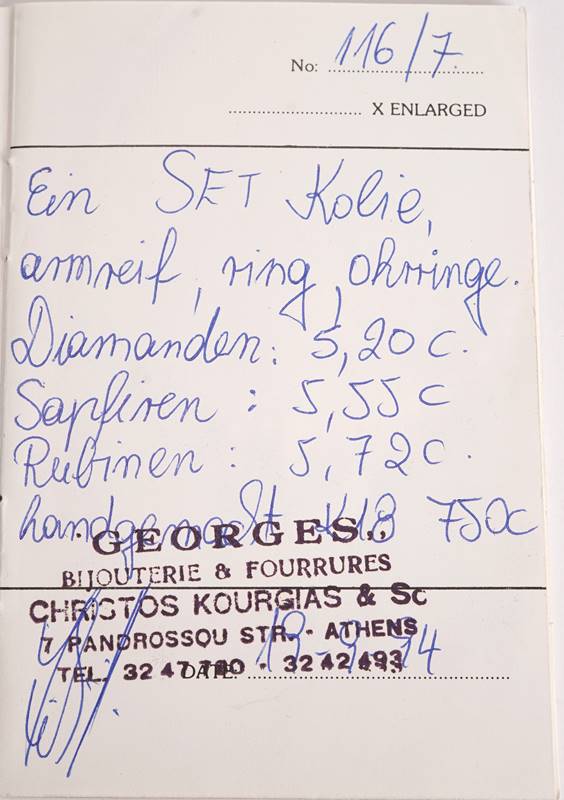 No: 116/7.
X ENLARGED
Ein SET Kolie,
armreif, ring, ohrringe.
Diamanden: 5,20 c.
Sapfiren : 5,55 c
Rubinen : 5,72 c.
handgemacht K18 750c
"GEORGES"
BIJOUTERIE & FOURRURES
CHRISTOS KOURGIAS & Sc
7 PANDROSSOU STR. - ATHENS
TEL. 32 47 - 32 42 493
DATE: